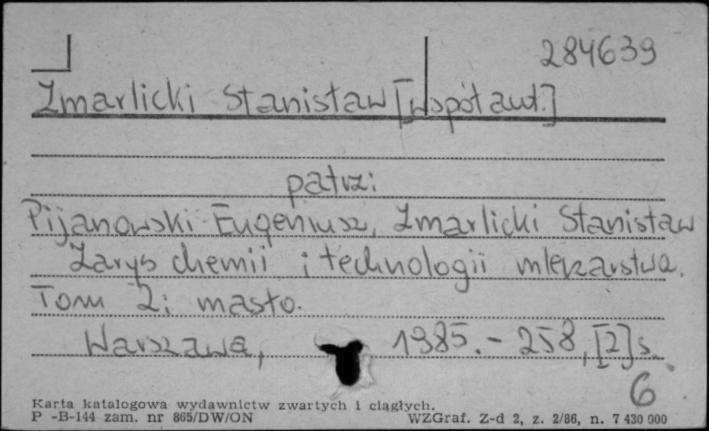 284639
Zmarlicki Stanisław [Współaut.]
patrz:
Pijanowski Eugeniusz, Zmarlicki Stanisław
Zarys chemii i technologii mleczarstwa.
Tom 2: masło.
Warszawa, 1985. - 258, [2] s.
6
Karta katalogowa wydawnictw zwartych i ciągłych.
P -B-144 zam. nr 865/DW/ON WZGraf. Z-d 2, z. 2/86, n. 7 430 000